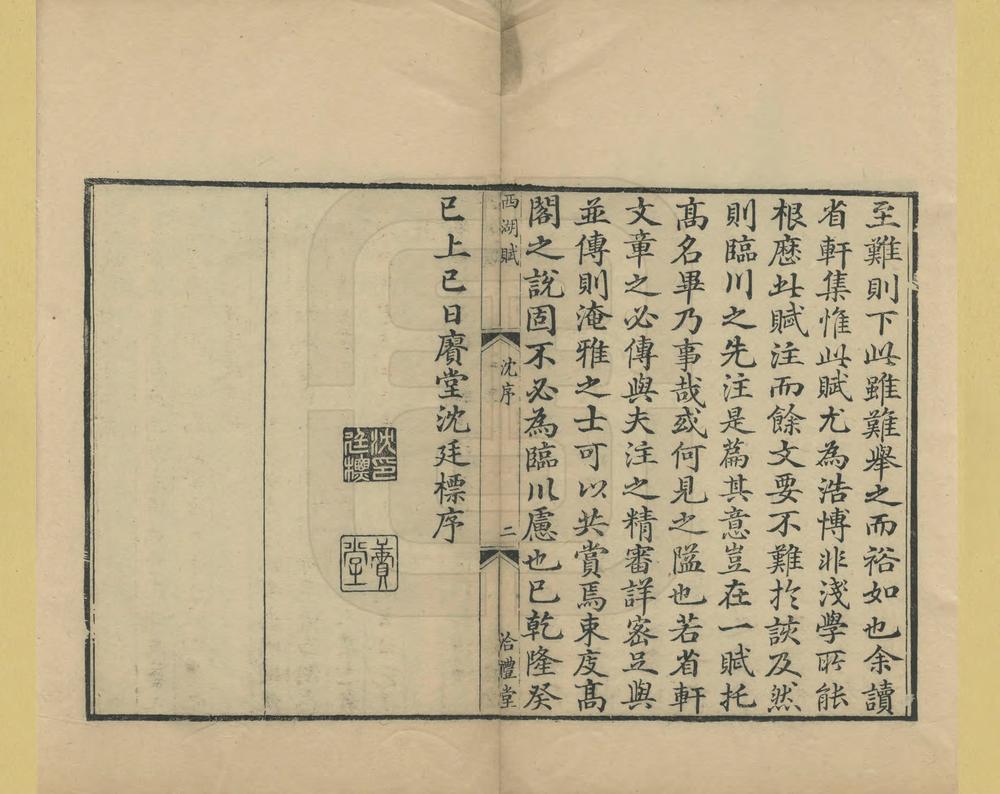 至難則下此雖難舉之而裕如也余讀
省軒集惟此賦尤為浩博非淺學所能
根歷此賦注而餘文要不難於該及然
則臨川之先注是篇其意豈在一賦托
髙名畢乃事哉或何見之隘也若省軒
文章之必傳與夫注之精審詳密足與
並傳則淹雅之士可以共賞焉束度髙
閣之說固不必為臨川慮也已乾隆癸
西湖賦
沈序
二
洽禮堂
巳上巳日賡堂沈廷標序
沈印廷標
賡堂